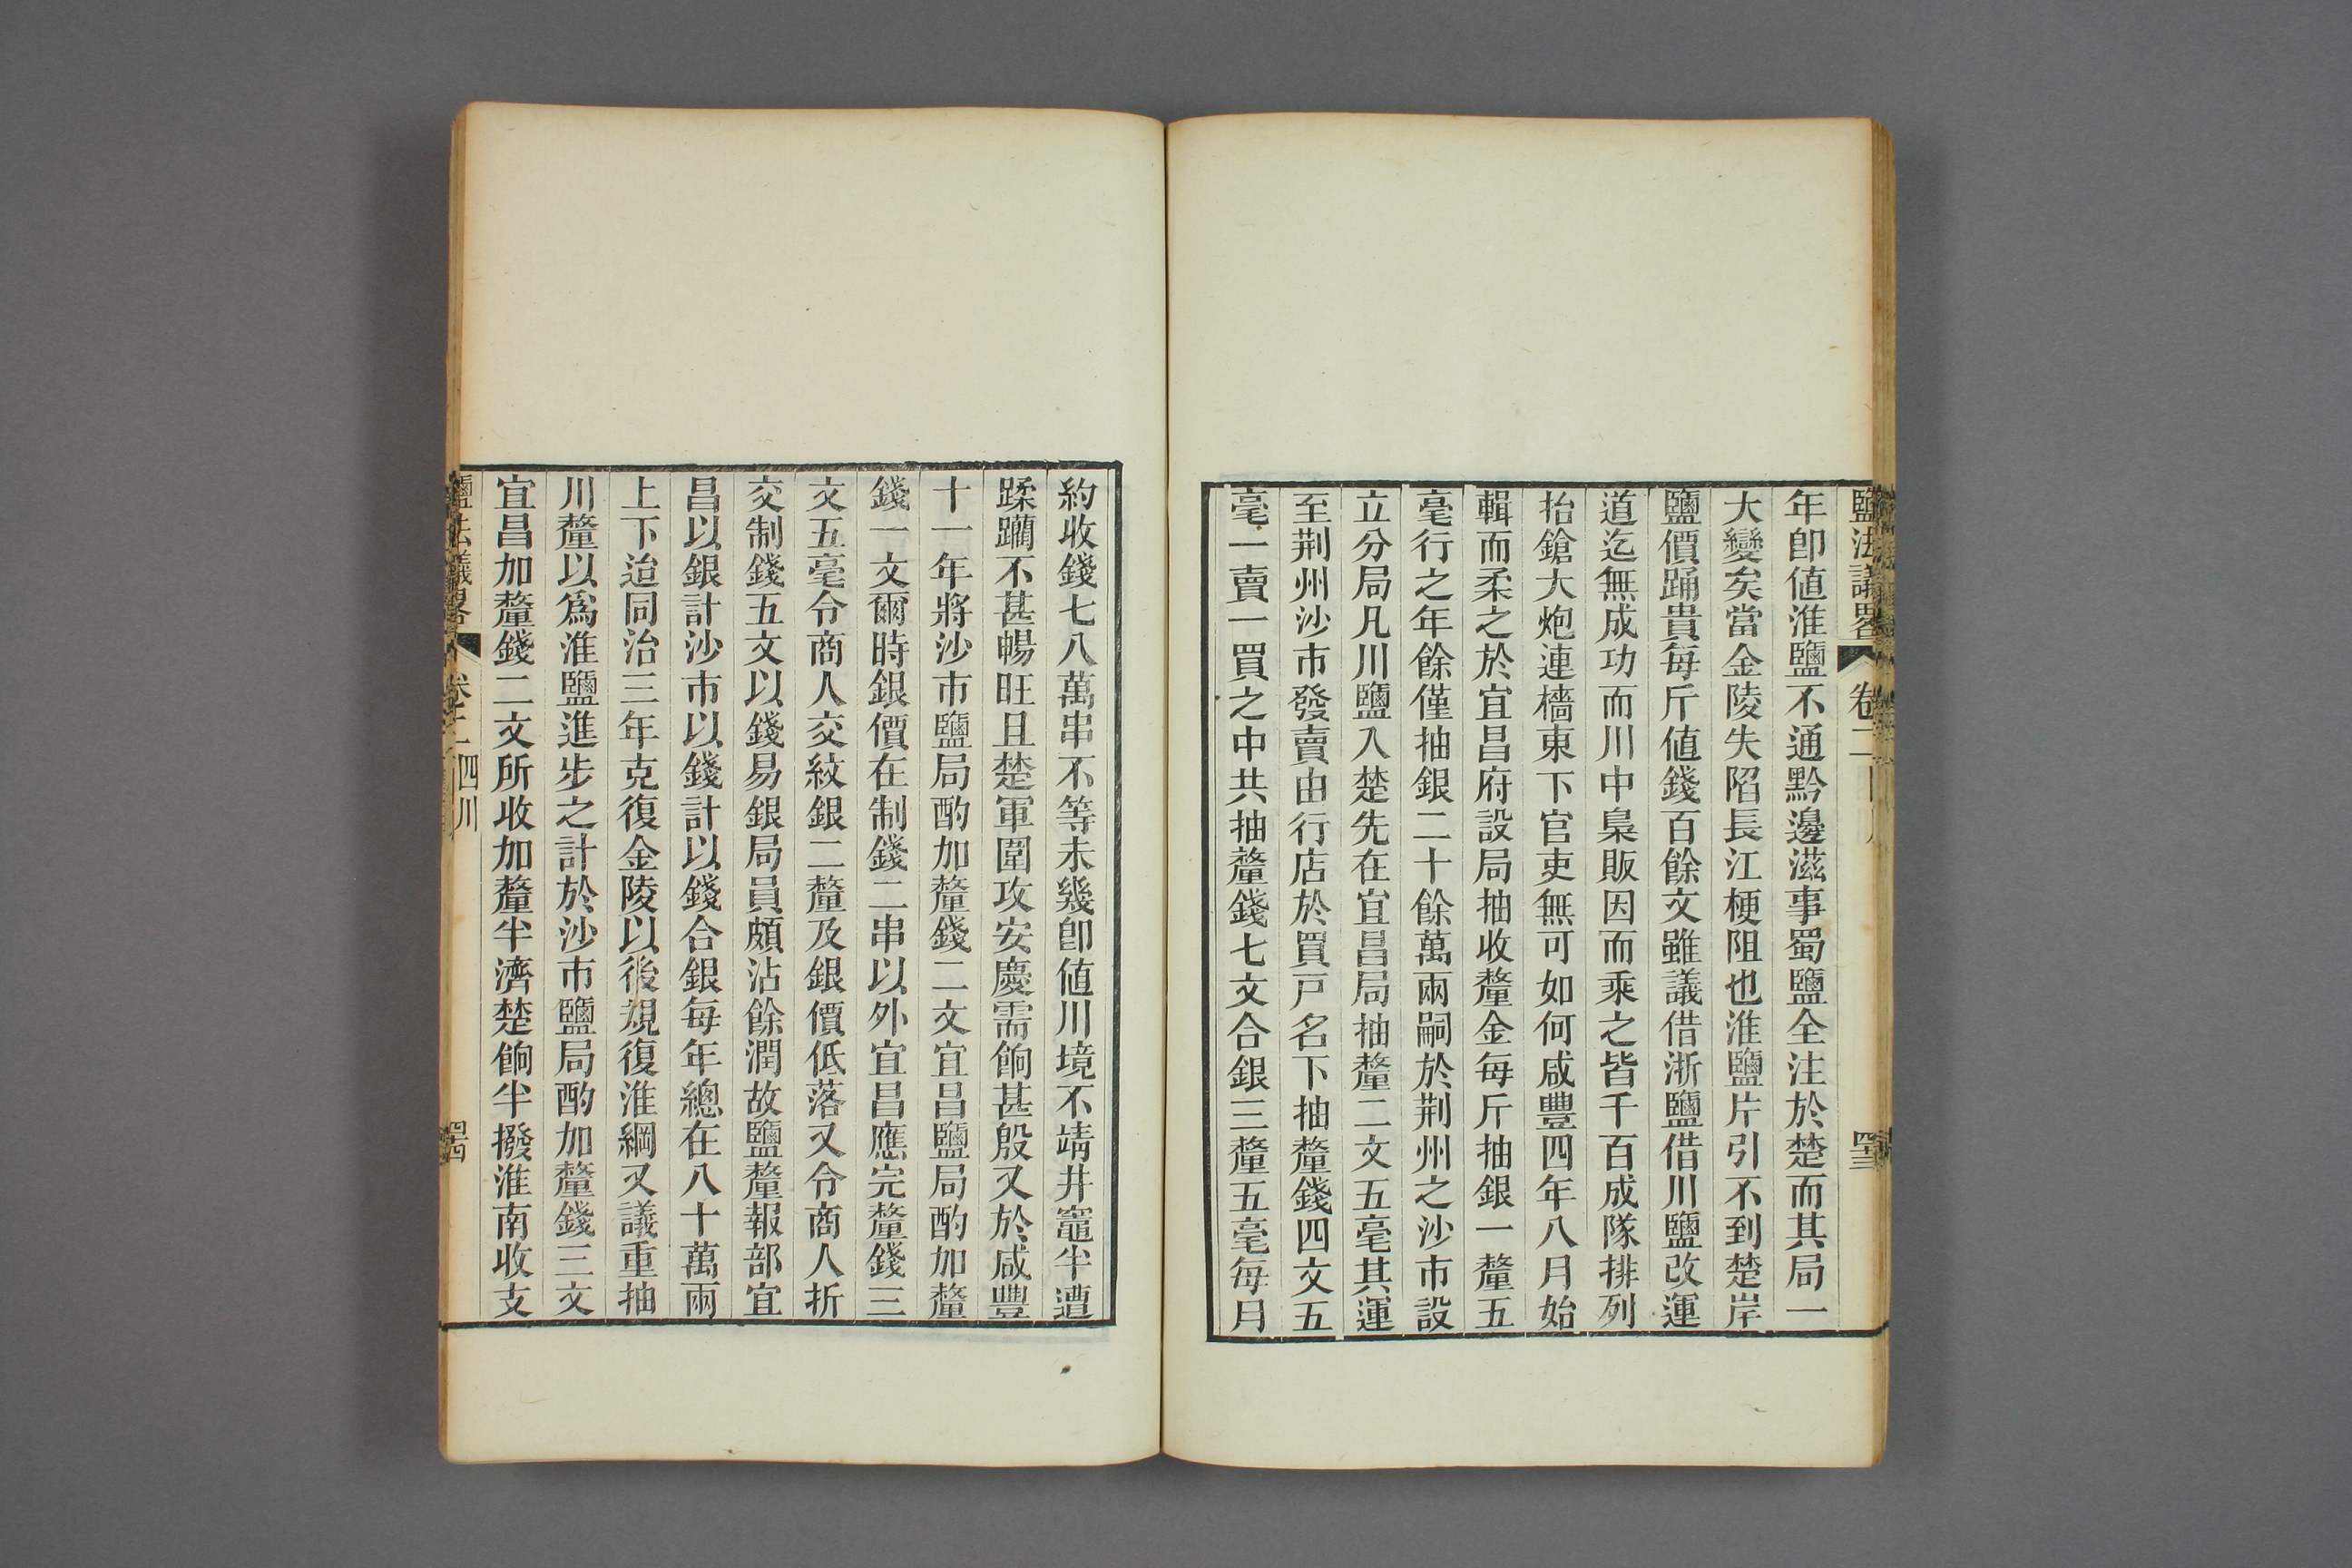 鹽法議畧 卷二 四川 四十三
年卽値淮鹽不通黔邊滋事蜀鹽全注於楚而其局一
大變矣當金陵失陷長江梗阻也淮鹽片引不到楚岸
鹽價踊貴每斤値錢百餘文雖議借浙鹽借川鹽改運
道迄無成功而川中梟販因而乘之皆千百成隊排列
抬鎗大炮連檣東下官吏無可如何咸豐四年八月始
輯而柔之於宜昌府設局抽收釐金每斤抽銀一釐五
毫行之年餘僅抽銀二十餘萬兩嗣於荆州之沙市設
立分局凡川鹽入楚先在宜昌局抽釐二文五毫其運
至荆州沙市發賣由行店於買戸名下抽釐錢四文五
毫一賣一買之中共抽釐錢七文合銀三釐五毫每月
約收錢七八萬串不等未幾卽値川境不靖井竈半遭
蹂躪不甚暢旺且楚軍圍攻安慶需餉甚殷又於咸豐
十一年將沙市鹽局酌加釐錢二文宜昌鹽局酌加釐
錢一文爾時銀價在制錢二串以外宜昌應完釐錢三
文五毫令商人交紋銀二釐及銀價低落又令商人折
交制錢五文以錢易銀局員頗沾餘潤故鹽釐報部宜
昌以銀計沙市以錢計以錢合銀每年總在八十萬兩
上下迨同治三年克復金陵以後規復淮綱又議重抽
川釐以爲淮鹽進步之計於沙市鹽局酌加釐錢三文
宜昌加釐錢二文所收加釐半濟楚餉半撥淮南收支
鹽法議畧 卷二 四川 四十四